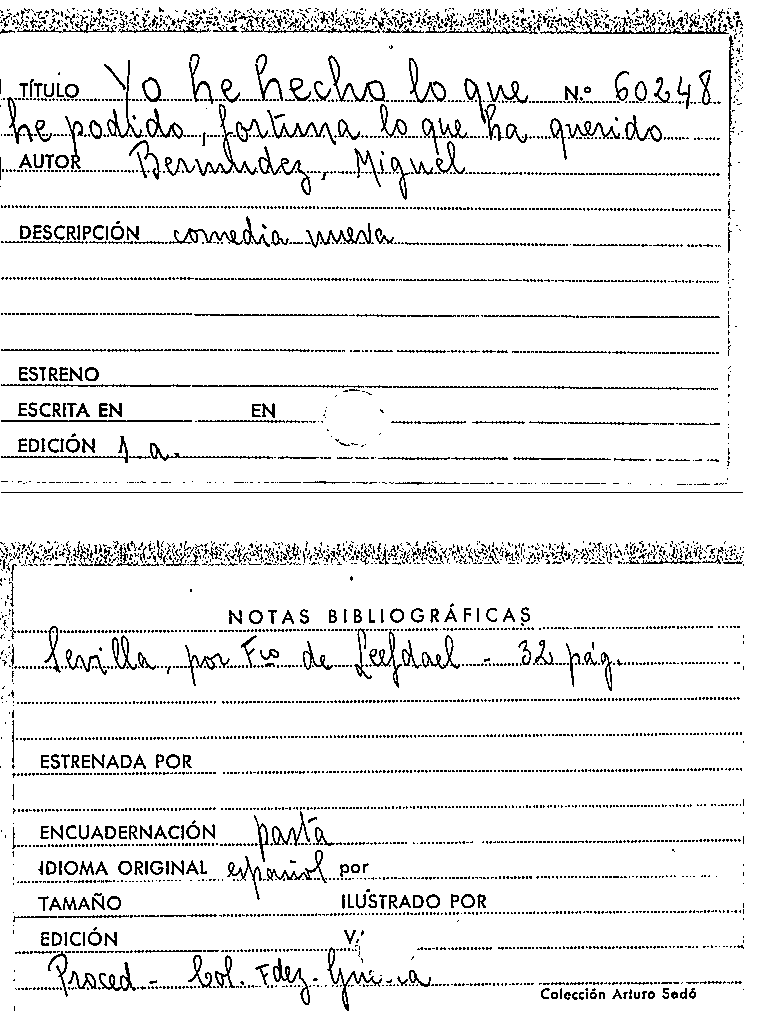 TÍTULO Yo he hecho lo que N.º 60248
he podido, fortuna lo que ha querido
AUTOR Bermudez, Miguel
DESCRIPCIÓN comedia nueva
ESTRENO
ESCRITA EN EN
EDICIÓN 1 a.
NOTAS BIBLIOGRÁFICAS
Sevilla, por Fco de Leefdael - 32 pág.
ESTRENADA POR
ENCUADERNACIÓN pasta
IDIOMA ORIGINAL español por
TAMAÑO ILUSTRADO POR
EDICIÓN V.
Proced - Col. Fdez-
Colección Arturo Sedó